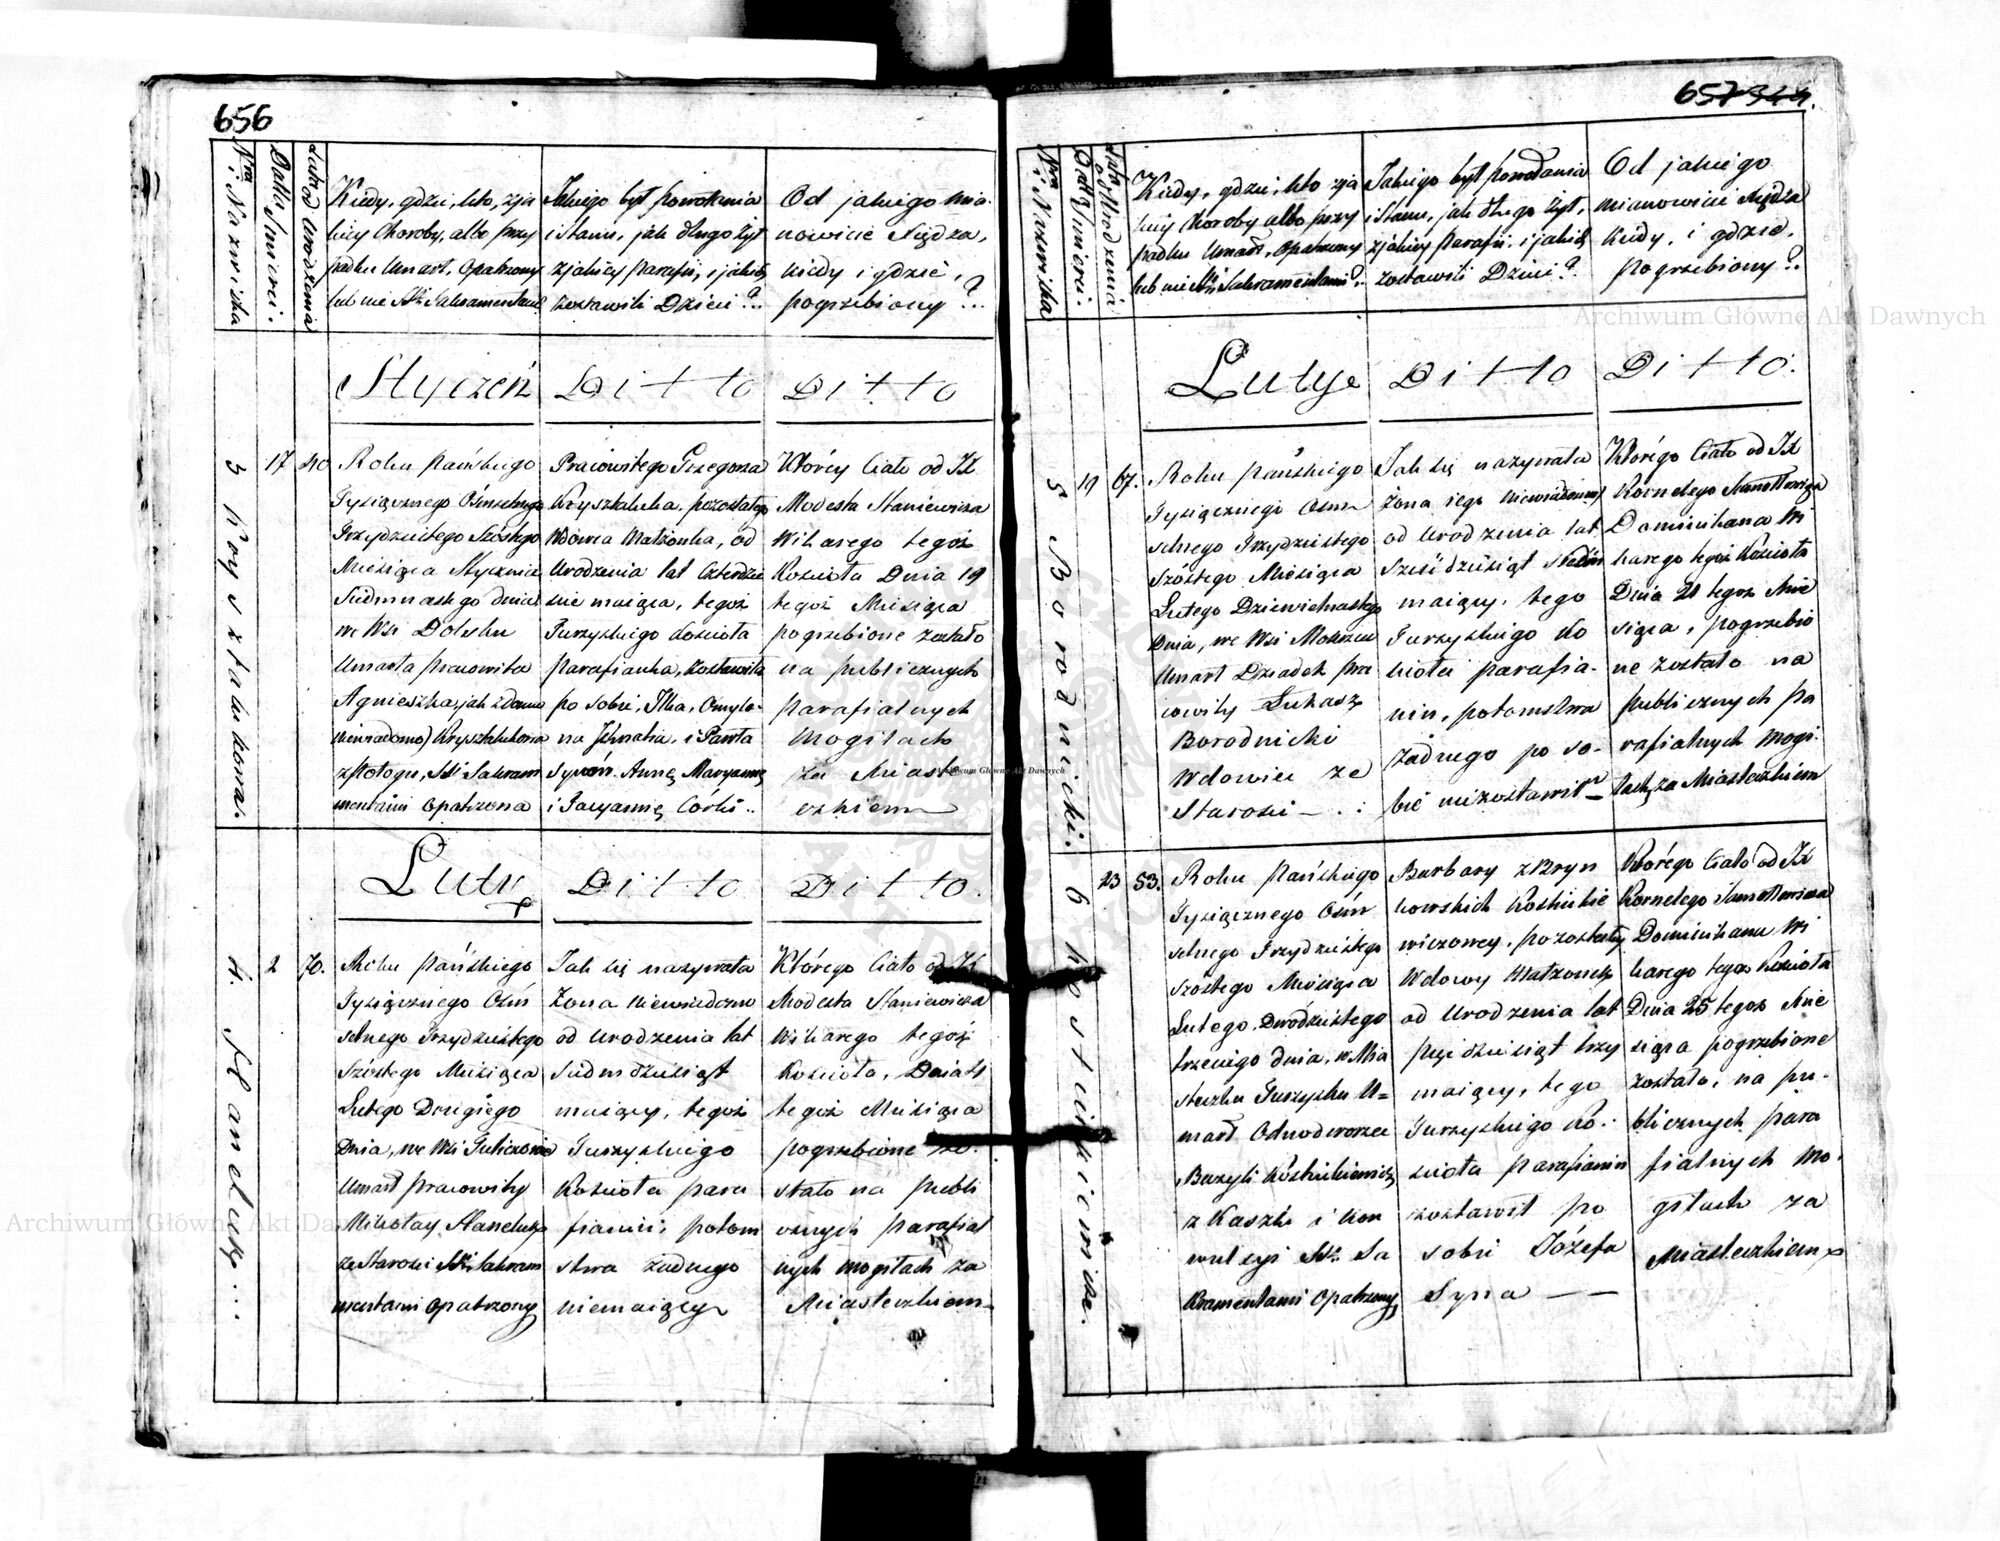 656
Nra i Nazwiska
Datta Śmierci.
Lata od Urodzenia
Kiedy, gdzie, kto, zja
kiey Choroby, albo przy
padku Umarł, Opatrzony
lub nie SS. Sakramentami
Jakiego był powołania
i stanu, jak długo żył
z jakiey Parafii, i jakie
zostawili Dzieci?..
Od jakiego mia
nowicie Xiędza,
kiedy i gdzie,
pogrzebiony?..
Styczeń
Ditto
Ditto
3
Krysztalukowa.
17
40
Roku Pańskiego
Tysiącznego Ośmsetnego
Trzydziestego Szóstego
Miesiąca Stycznia
Siedmnastego dnia
we Wsi Dolsku
Umarła Pracowita
Agnieszka, jak z Domu
(niewiadomo) Krysztalukowa
z połogu, SS. Sakram
mentami Opatrzona
Pracowitego Grzegorza
Krysztaluka, pozostałego
Wdowca Małżonka, od
Urodzenia lat Czterdzie
ście maiąca, tegoż
Turzyskiego Kościoła
Parafianka, zostawiła
po sobie, Ilka, Omyla-
na Jehnatia, i Pawła
Synów. Annę Maryannę
i Tacyannę Córki..
Którey Ciało od JX
Modesta Staniewicza
Wikarego tegoż
Kościoła Dnia 19
tegoż Miesiąca
pogrzebione zostało
na publicznych
parafialnych
Mogiłach
za Miaste
czkiem
Luty
Ditto
Ditto.
4.
Slaneluk...
2
70.
Roku Pańskiego
Tysiącznego Ośm
setnego Trzydziestego
Szóstego Miesiąca
Lutego Drugiego
Dnia, we Wsi Tuliczowie
Umarł Pracowity
Mikołay Slaneluk
ze Starości SS. Sakram
mentami Opatrzony
Jak się nazywała
Żona niewiadomo
od Urodzenia lat
siedmdziesiąt
maiący, tegoż
Turzyskiego
Kościoła para
fianin, potom
stwa żadnego
niemaiący
Którego Ciało od JX
Modesta Staniewicza
Wikarego tegoż
Kościoła, Dnia 4
tegoż Miesiąca
pogrzebione zo-
stało na publi
cznych parafial
nych mogiłach za
Miasteczkiem
657
Nra i Nazwiska
Datta Śmierci.
Lata od Urodzenia
Kiedy, gdzie, kto zja
kiey Choroby albo przy
padku Umarł, Opatrzony
lub nie SS. Sakramentami?.
Jakiego był powołania
i Stanu, jak długo żył,
z jakiey Parafii, i jakie
zostawili Dzieci?.
Od jakiego
mianowicie Xiędza
kiedy, i gdzie,
pogrzebiony?.
Luty
Ditto
Ditto.
5
Borodnicki.
19
67.
Roku Pańskiego
Tysiącznego Ośm
setnego Trzydziestego
Szóstego Miesiąca
Lutego Dziewietnastego
Dnia, we Wsi Mokrcu
Umarł Dziadek Pra
cowity Łukasz
Borodnicki
Wdowiec ze
Starości
Jak się nazywała
Żona jego (niewiadomo)
od Urodzenia lat
sześćdziesiąt siedm
maiący, tego
Turzyskiego Ko
ścioła parafia-
nin, potomstwa
żadnego po so-
bie niezostawił
Którego Ciało od JX
Kornelego Samotłowicza
Dominikana Wi
karego tegoż Kościoła
Dnia 21 tegoż Mie
siąca, pogrzebio
ne zostało na
publicznych pa
rafialnych mogi-
łach, za Miasteczkiem
6
Kostiukiewicz.
23
53.
Roku Pańskiego
Tysiącznego Ośm
setnego Trzydziestego
Szóstego Miesiąca
Lutego Dwódziestego
trzeciego dnia, w Mia
steczku Turzysku U=
marł Odnodworzec
Bazyli Kostiukiewicz
z Kaszlu i kon
wulsyi SS. Sa
kramentami Opatrzony
Barbary z Bryn
kowskich Kostiukie
wiczowey, pozostałey
Wdowy Małżonek
od Urodzenia lat
pięćdziesiąt trzy
maiący, tego
Turzyskiego Ko-
ścioła Parafianin
zostawił po
sobie Józefa
Syna
Którego Ciało od JX
Kornelego Samotłowicza
Dominikana Wi
karego tegoż Kościoła
Dnia 25 tegoż Mie
siąca pogrzebione
zostało, na pu-
blicznych para
fialnych mo-
giłach za
Miasteczkiem
Archiwum Główne Akt Dawnych
Archiwum Główne Akt Dawnych
Archiwum Główne Akt Dawnych